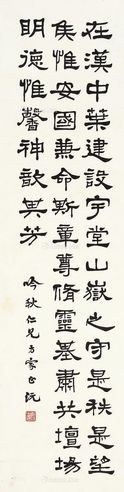 在漢中葉建設宇堂山嶽之守是秩是望
侯惟安國兼命斯章尊脩靈基肅共壇場
明德惟馨神歆其芳
吟秋仁兄方家正